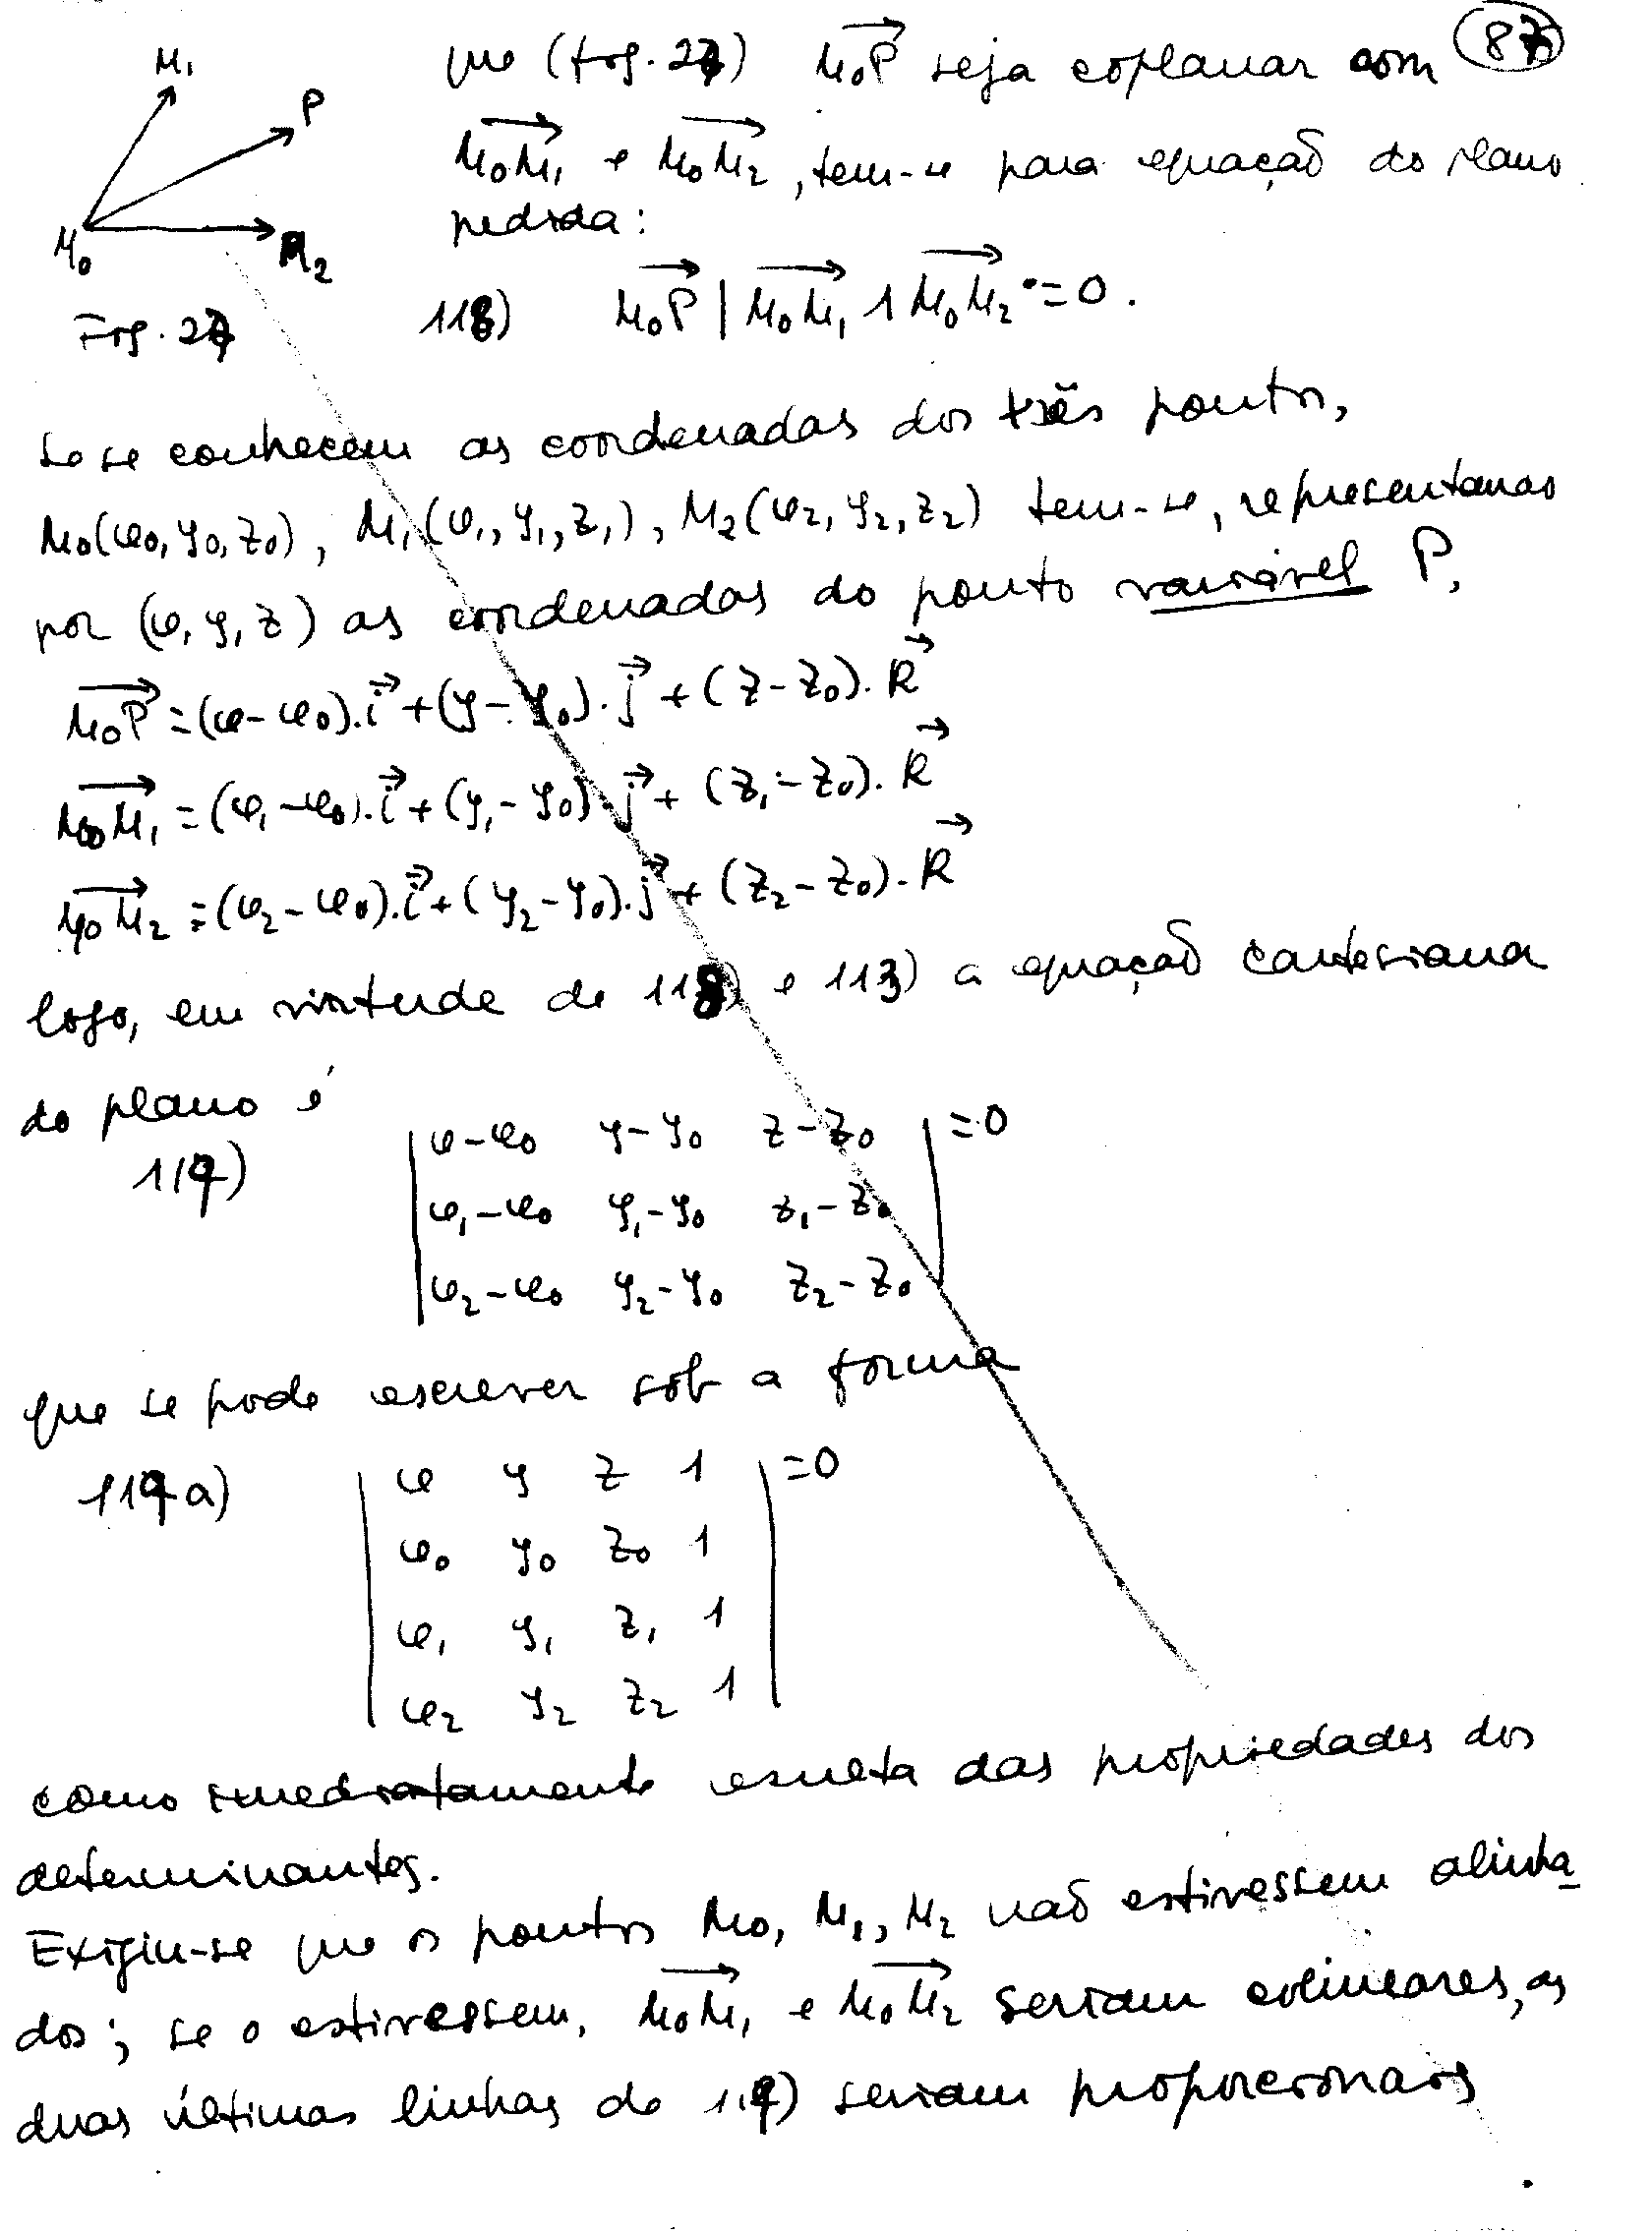 que (fig. 27) M₀P seja coplanar com (87)
M₀M₁ e M₀M₂, tem-se para equação do plano
pedida:
M₁
P
M₀
M₂
Fig. 27
118) M₀P | M₀M₁ ∧ M₀M₂ = 0.
Se se conhecem as coordenadas dos três pontos,
M₀(x₀, y₀, z₀), M₁(x₁, y₁, z₁), M₂(x₂, y₂, z₂) tem-se, representando
por (x, y, z) as coordenadas do ponto variável P,
M₀P = (x-x₀).i + (y-y₀).j + (z-z₀).k
M₀M₁ = (x₁-x₀).i + (y₁-y₀).j + (z₁-z₀).k
M₀M₂ = (x₂-x₀).i + (y₂-y₀).j + (z₂-z₀).k
logo, em virtude de 118) e 113) a equação cartesiana
do plano é
119) | x-x₀ y-y₀ z-z₀ | = 0
x₁-x₀ y₁-y₀ z₁-z₀
x₂-x₀ y₂-y₀ z₂-z₀
que se pode escrever sob a forma
119a) | x y z 1 | = 0
x₀ y₀ z₀ 1
x₁ y₁ z₁ 1
x₂ y₂ z₂ 1
como imediatamente resulta das propriedades dos
determinantes.
Exigiu-se que os pontos M₀, M₁, M₂ não estivessem alinha-
dos; se o estivessem, M₀M₁ e M₀M₂ seriam colineares, as
duas últimas linhas de 119) seriam proporcionais